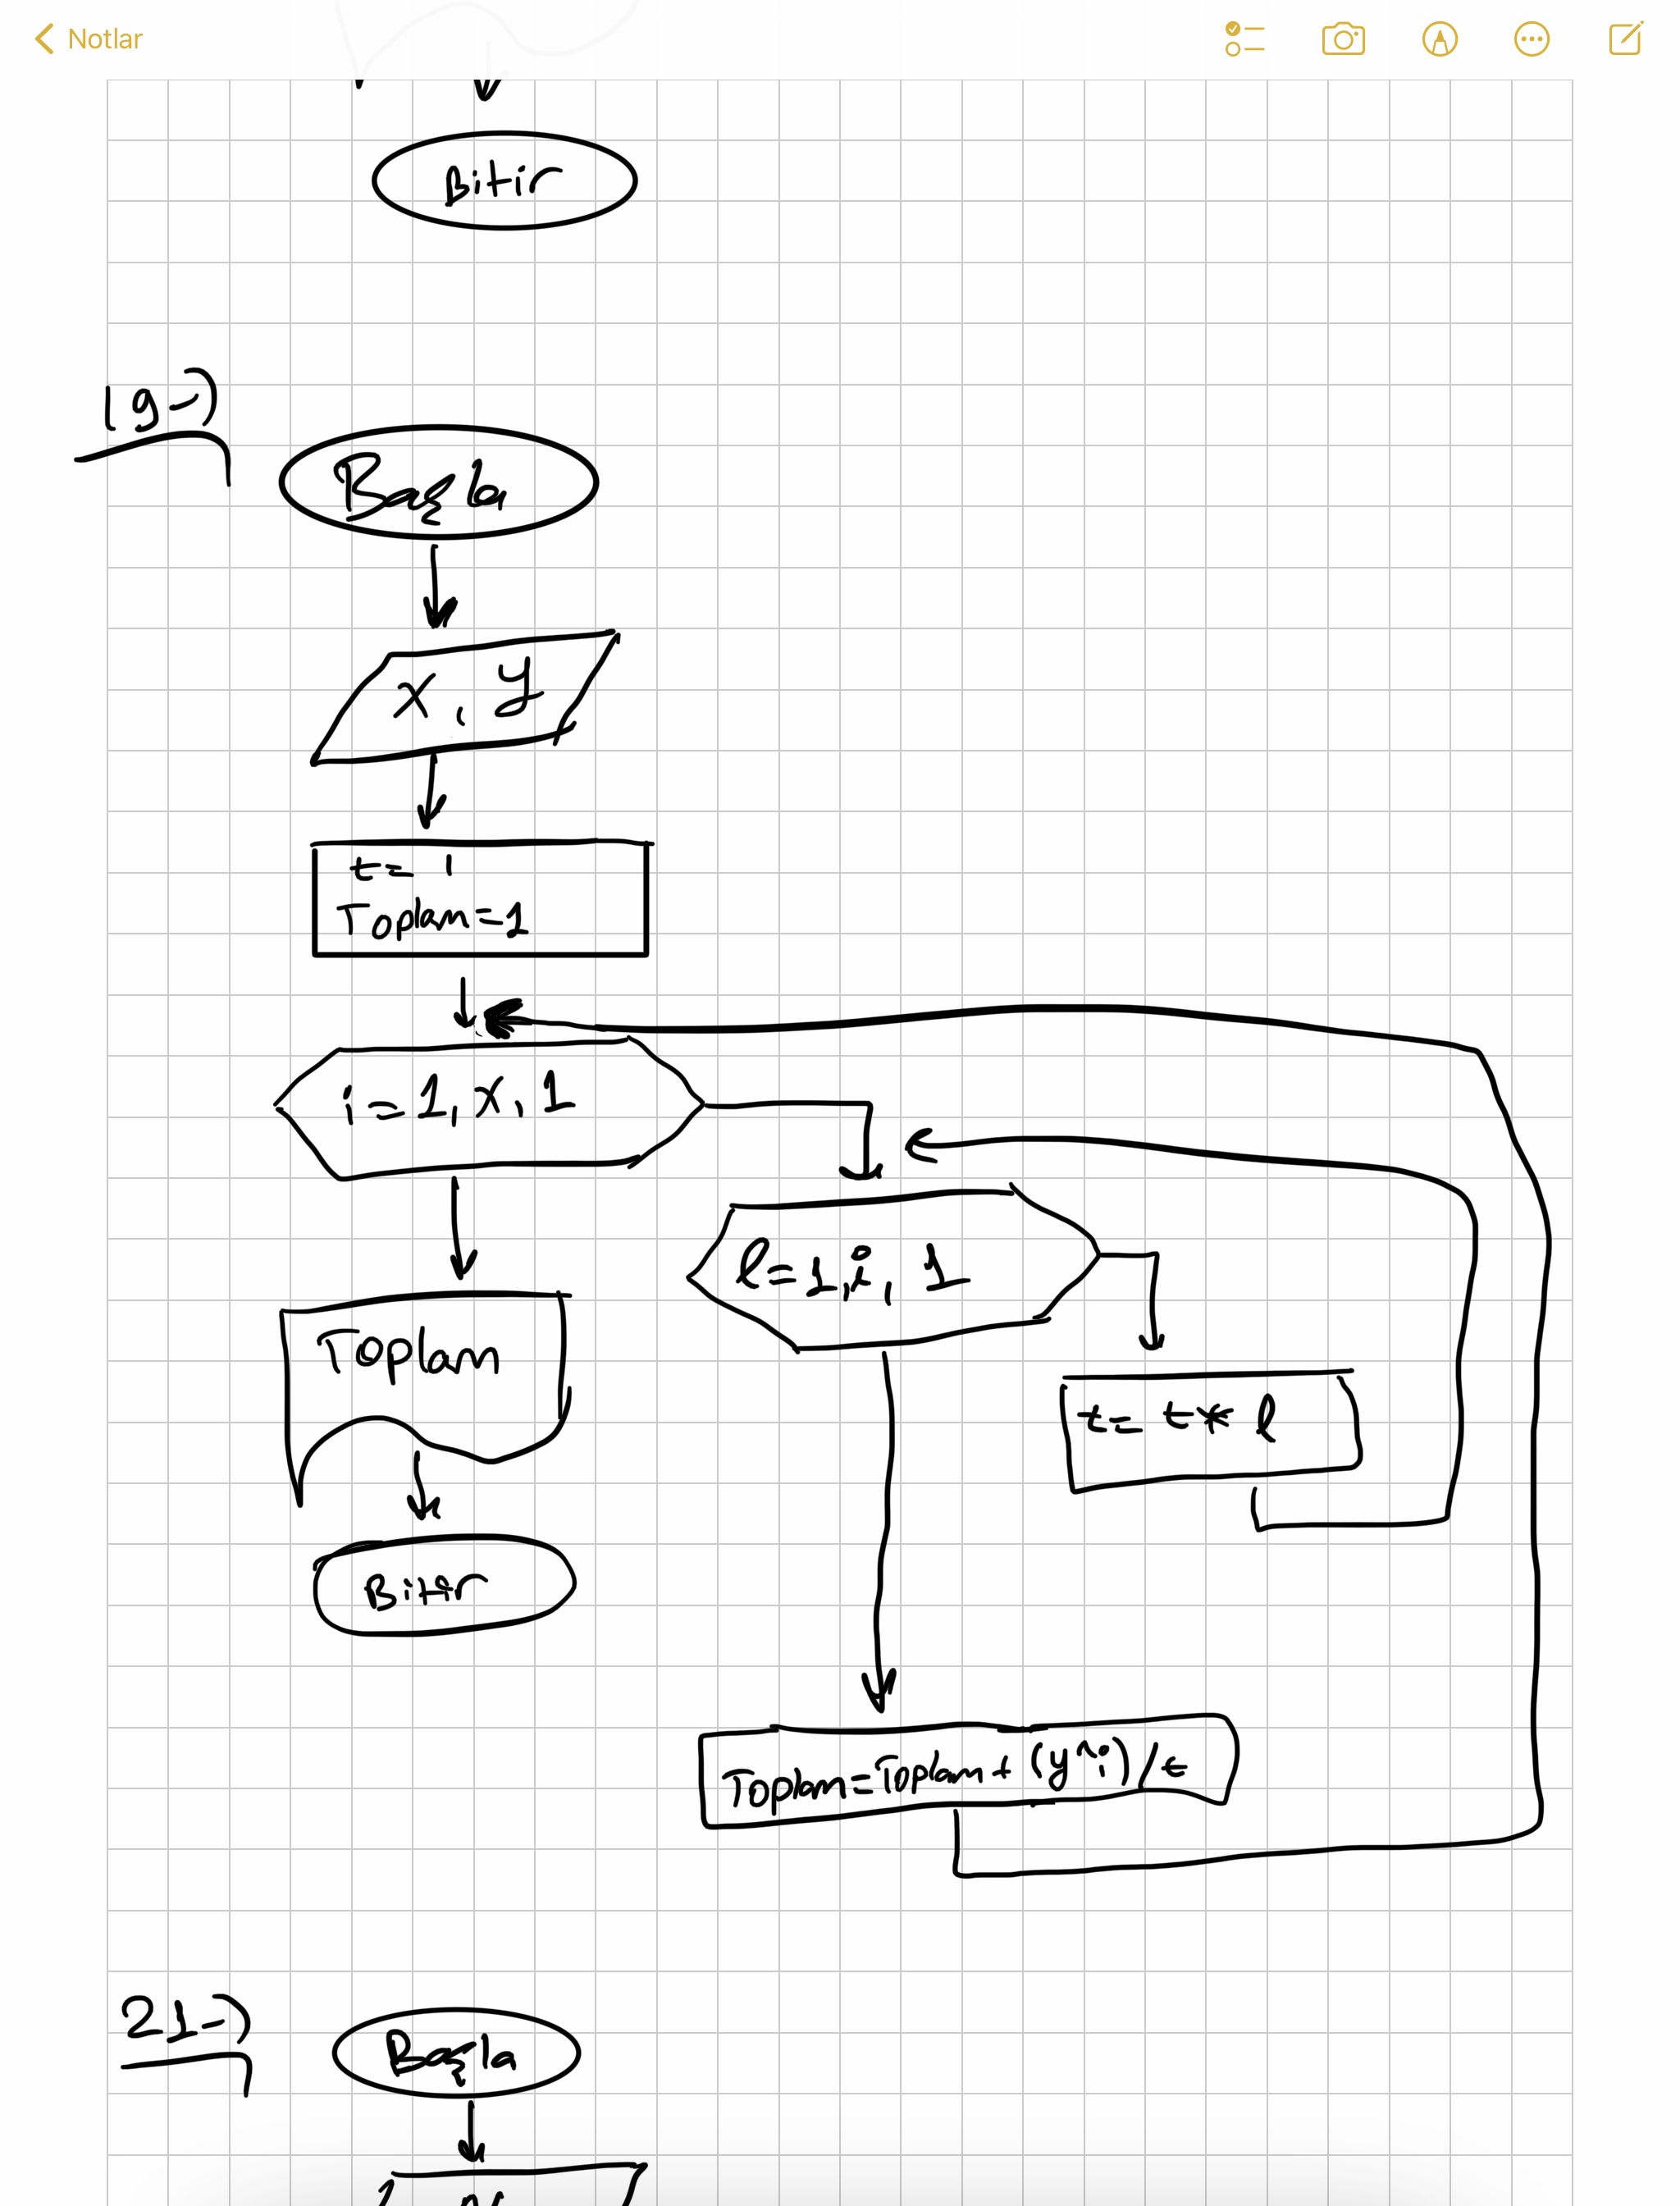 Notlar
Bitir
19-)
Başla
x, y
t= 1
Toplam=1
i=1, x, 1
l=1, i, 1
Toplam
t= t* l
Bitir
Toplam=Toplam+(y^i)/t
21-)
Başla